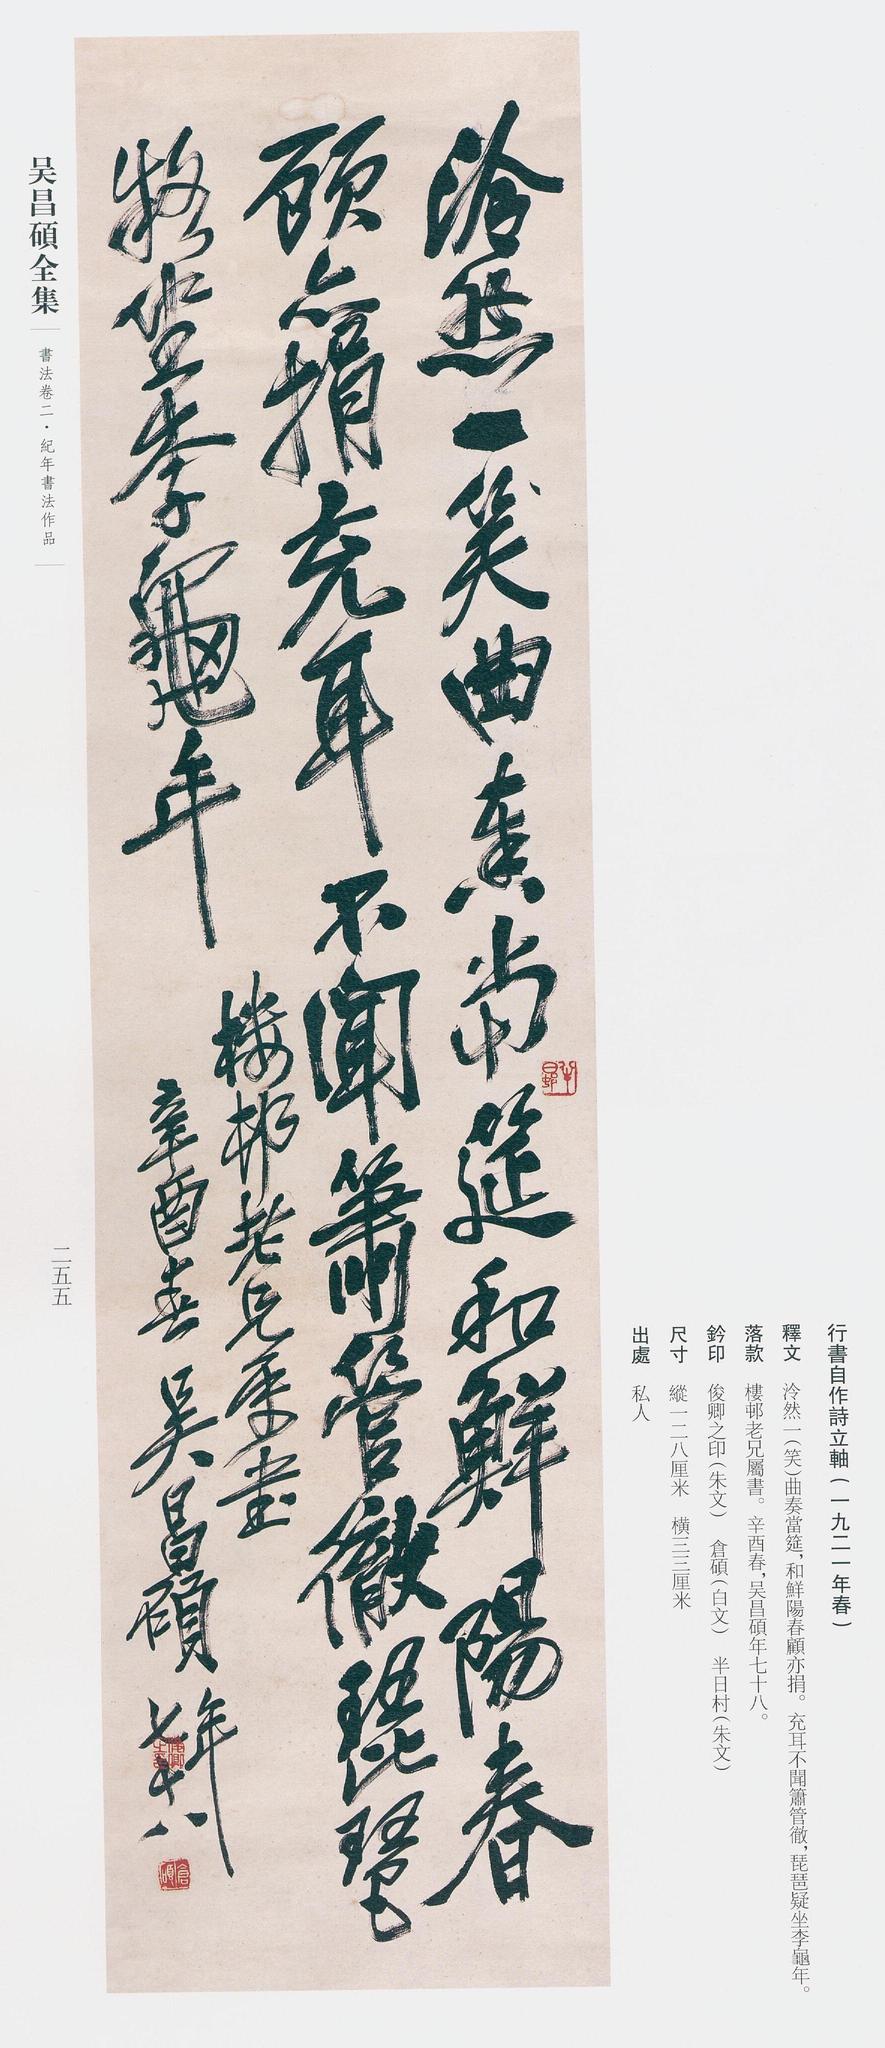 泠然一笑曲奏當筵和鮮陽春
顧亦捐充耳不聞簫管徹琵琶
疑坐李龜年
樓邨老兄屬書
辛酉春吳昌碩年
七十八
行書自作詩立軸(一九二一年春)
釋文 泠然一(笑)曲奏當筵,和鮮陽春顧亦捐。充耳不聞簫管徹,琵琶疑坐李龜年。
落款 樓邨老兄屬書。辛酉春,吴昌碩年七十八。
鈐印 俊卿之印(朱文) 倉碩(白文) 半日村(朱文)
尺寸 縱一二八厘米 橫三三厘米
出處 私人
吴昌碩全集
書法卷二·紀年書法作品
二五五